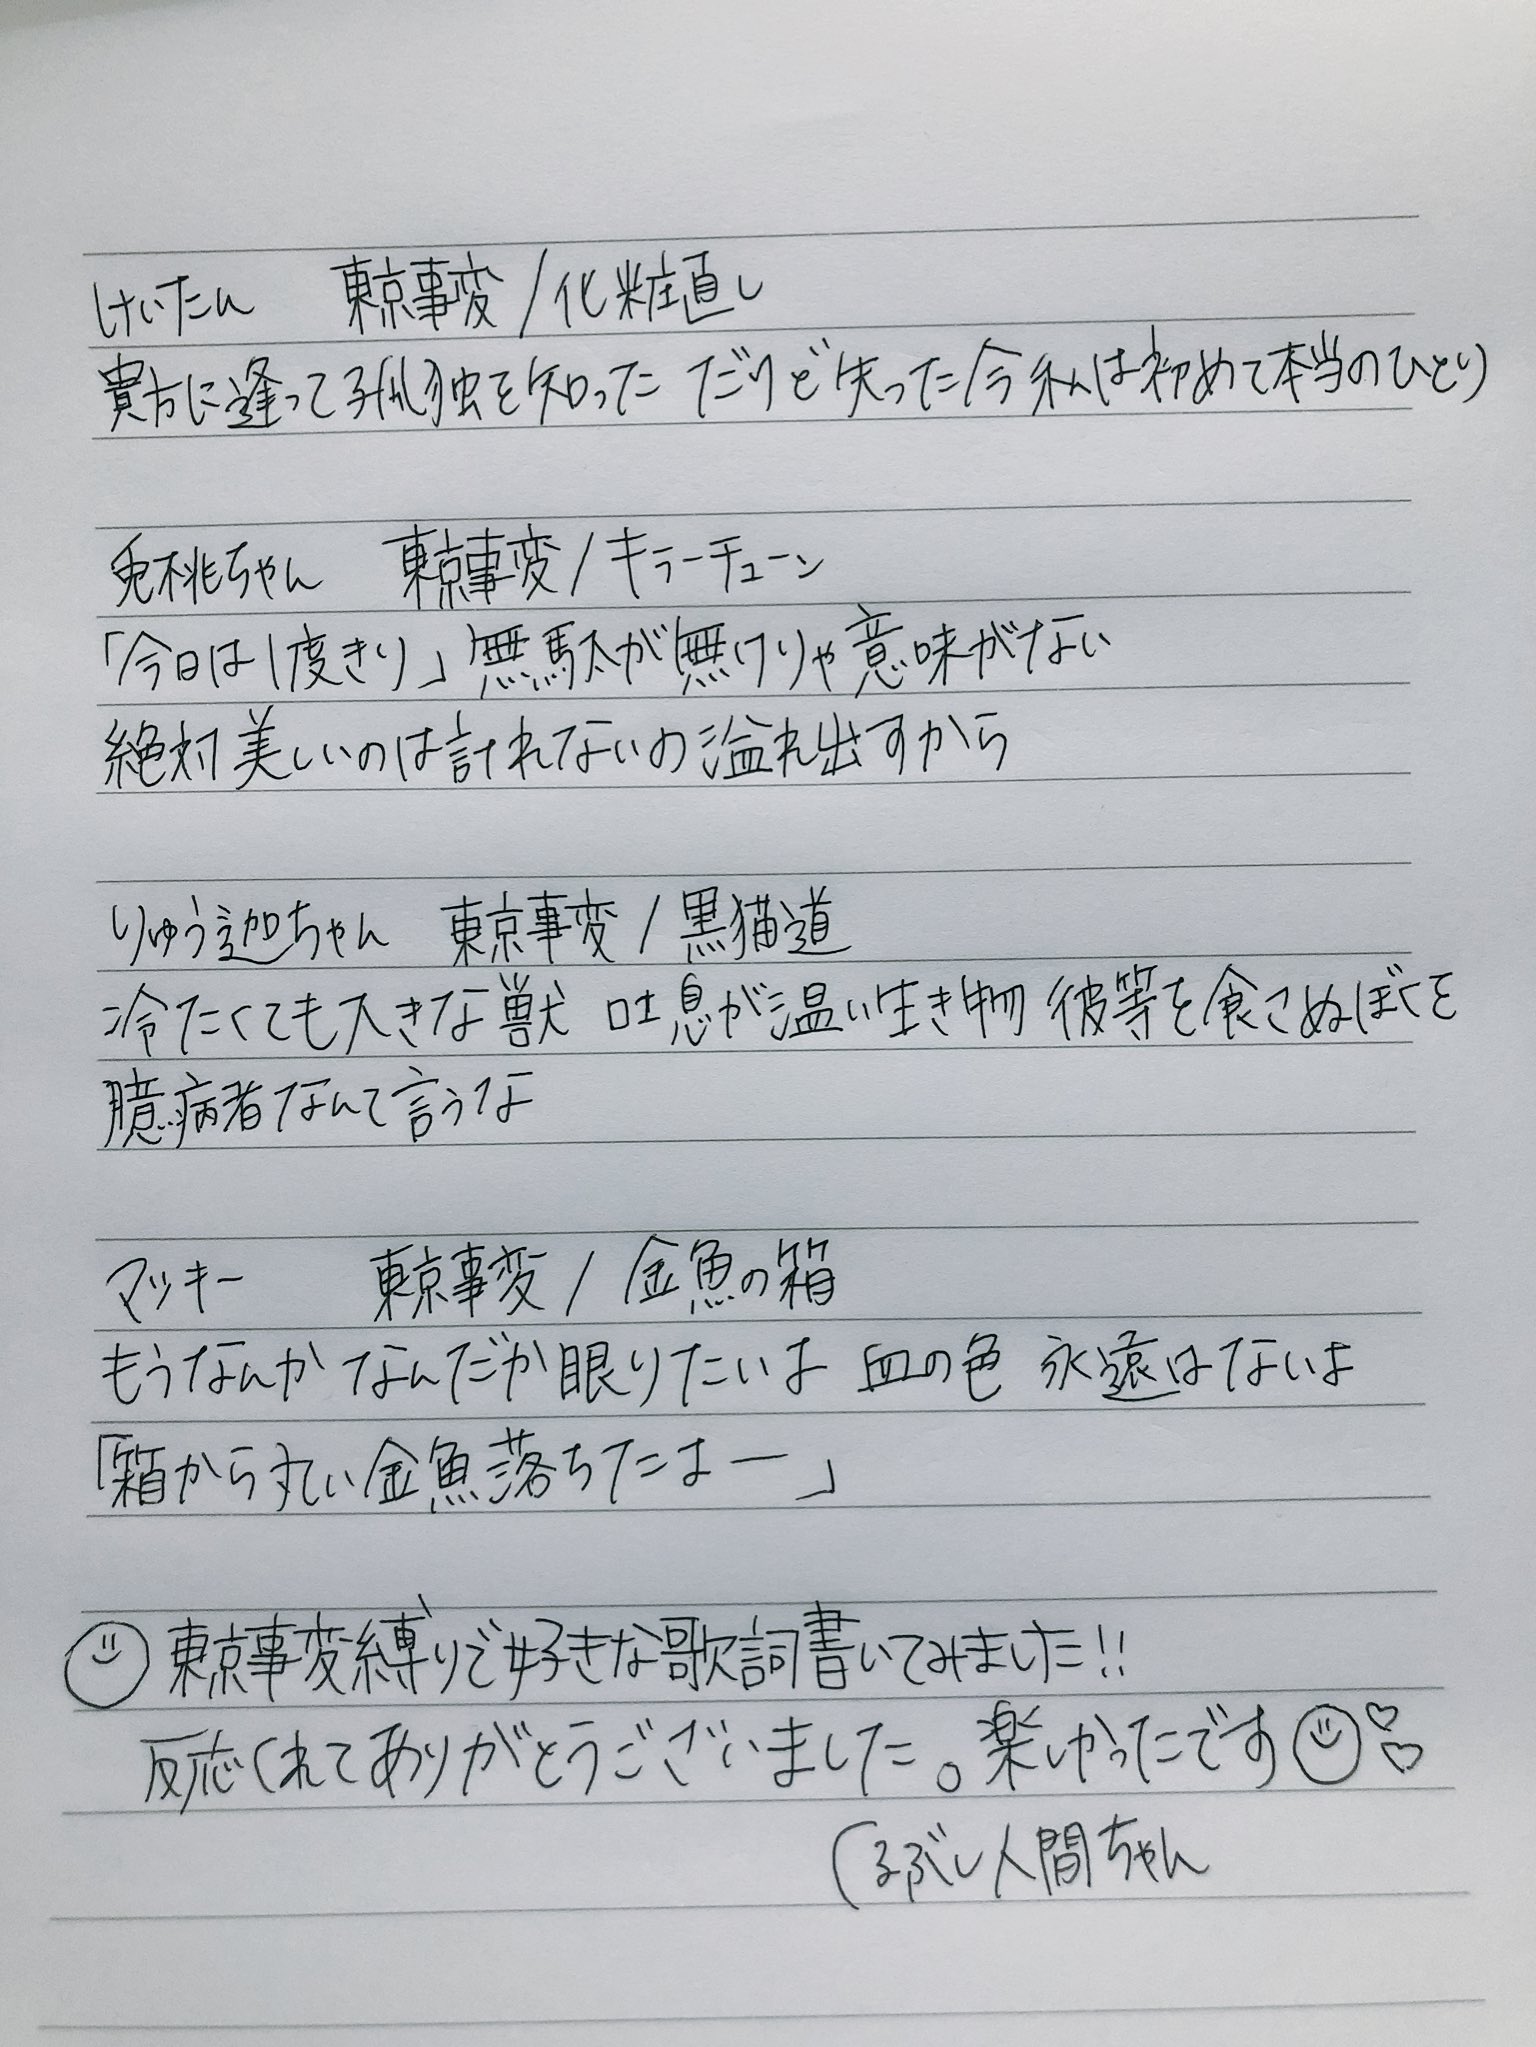 けいたん 東京事変/化粧直し
貴方に逢って孤独を知った だけど失った今私は初めて本当のひとり
兎桃ちゃん 東京事変/キラーチューン
「今日は1度きり」無駄が無けりゃ意味がない
絶対美しいのは計れないの溢れ出すから
りゅう迦ちゃん 東京事変/黒猫道
冷たくても大きな獣 吐息が温い生き物 彼等を食こぬぼくを
臆病者なんて言うな
マッキー 東京事変/金魚の箱
もうなんか なんだか眠りたいよ 血の色 永遠はないよ
「箱から丸い金魚落ちたよー」
東京事変縛りで好きな歌詞書いてみました!!
反応くれてありがとうございました。楽しかったです
くるぶし人間ちゃん